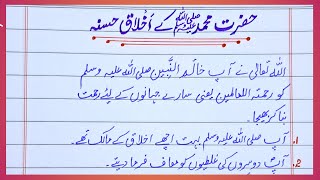 حضرت محمد ﷺ کے اخلاق حسنہ
اللہ تعالیٰ نے آپ خاتم النبیین صلی اللہ علیہ وسلم
کو رحمۃ اللعالمین یعنی سارے جہانوں کے لیئے رحمت
بنا کر بھیجا۔
1. آپ صلی اللہ علیہ وسلم بہت اچھے اخلاق کے مالک تھے۔
2. آپ دوسروں کی غلطیوں کو معاف فرما دیتے۔